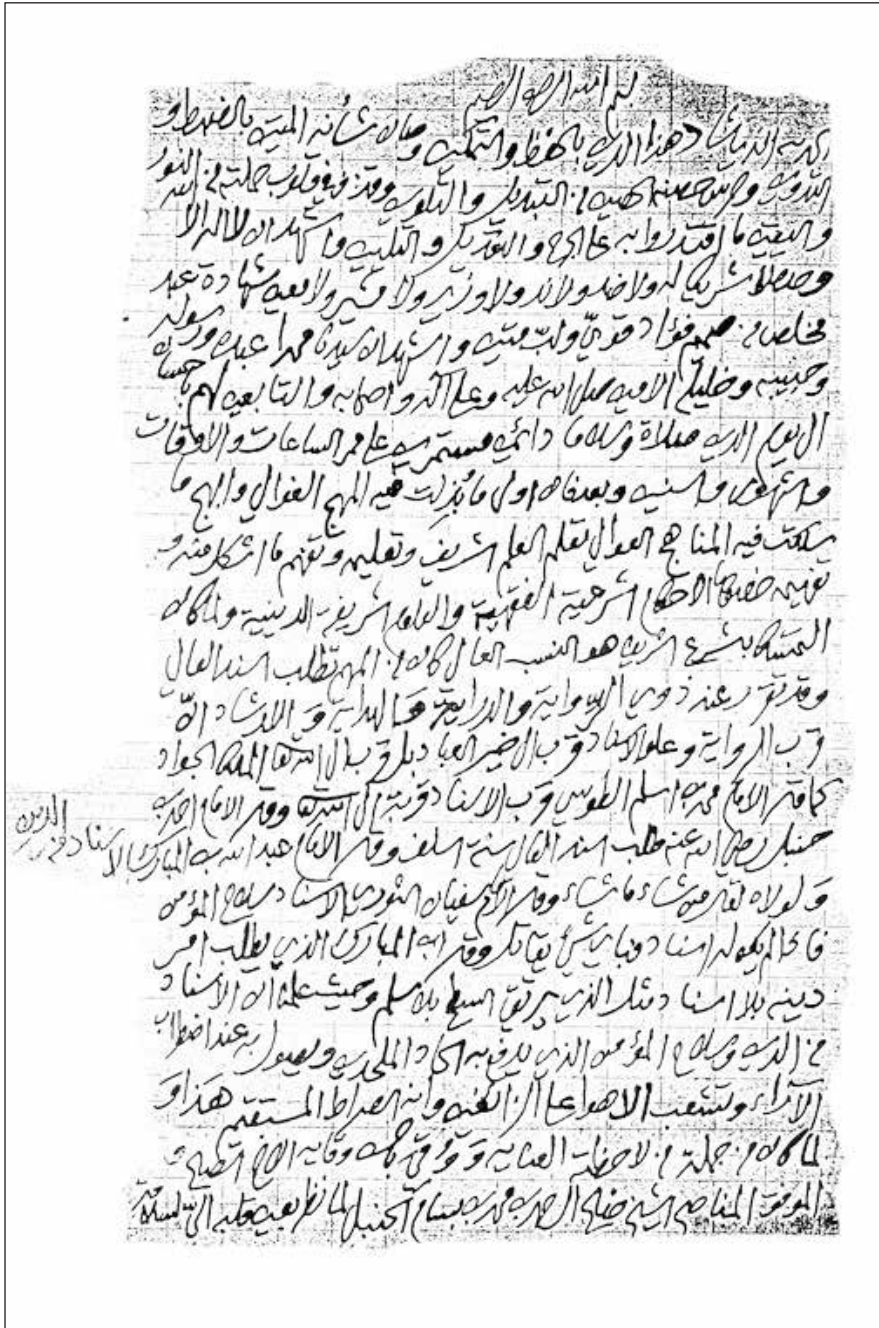 بسم الله الرحمن الرحيم
الحمد لله الذي شاد هذا الدين بالحفظ والتمكين وصان شأنه المتين بالضبط و
التدوين وحرس حصنه من التبديل والتلوين وقذف في قلوب حملته من النور
واليقين ما اقتدروا به على الجرح والتعديل والتليين وأشهد ان لا اله الا الله
وحده لا شريك له ولا ضد ولا ند ولا وزير ولا مشير ولا معين شهادة عبد
مخلص من صميم فؤاد قويّ ولبّ متين وأشهد ان سيدنا محمدا عبده ورسوله
وحبيبه وخليله الامين صلى الله عليه وعلى آله واصحابه والتابعين لهم باحسان
الى يوم الدين صلاة وسلاما دائمين مستمرين على ممر الساعات والاوقات
والشهور والسنين وبعد فان اولى ما بُذلت فيه المهج الغوالي وابهج ما
سلكت فيه المناهج العوالي تعلم العلم الشريف وتعليمه وتفهم ما اشكل منه و
تفهيمه خصوصا الاحكام الشرعية الفقهية والعلوم الشريفة الدينية ولما كان
التمسك بالشرع الشريف هو النسب العال كان من المهم تطلب السند العالي
وقد تقرر عند ذوي الرواية والدراية والهداية وَ الارشاد انّ
قرب الرواية وعلو الاسناد قرب الى خير العباد بل قرب الى الله تعالى الملك الجواد
كما قال الامام محمد بن اسلم الطوسي قرب الاسناد قربة الى الله تعالى وقال الامام احمد بن
حنبل رضي الله عنه طلب السند العال سنة السلف وقال الامام عبد الله بن المبارك الاسناد من الدين
وَ لولاه لقال من شاء ما شاء وقال الامام سفيان الثوري الاسناد سلاح المؤمن
فاذا لم يكن له اسناد فبأي شيء يقاتل وقال ابن المبارك الذي يطلب امر
دينه بلا اسناد مثل الذي يرتقي السطح بلا سلم وحيث علمنا ان الاسناد
من الدين وسلاح المؤمن الذي يدفع به الحاد الملحدين ويصول به عند اضطراب
الآراء وتشعب الاهواء على الزائغين وانه الصراط المستقيم هذا وَ
لما كان من جملة من لاحظته العناية وَ وقاية الاخ الصالح و
الموفق الشيخ صالح آل حمد بن محمد بن بسام الحنبلي لما نظر بعين قلبه الى